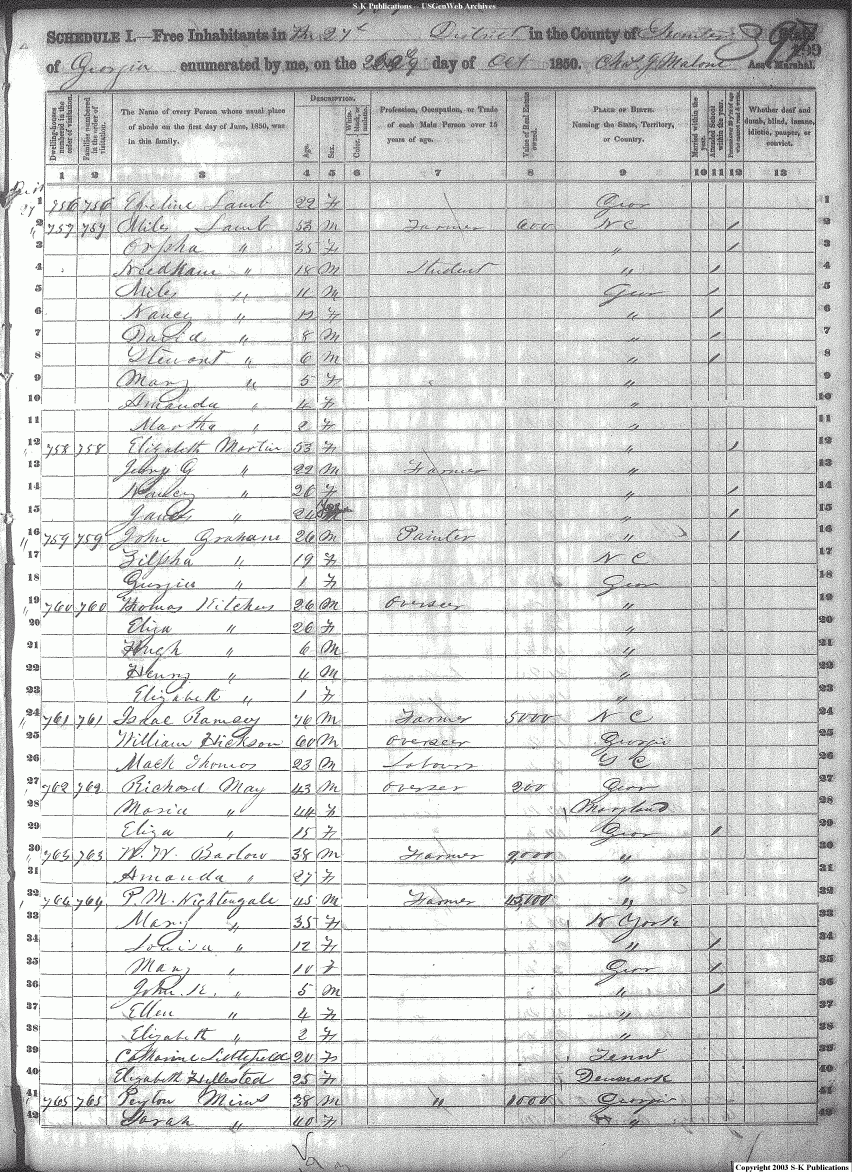 S-K Publications -- USGenWeb Archives
SCHEDULE I.—Free Inhabitants in The 27th District in the County of Sumter State
of Georgia enumerated by me, on the day of Oct 1850. Chas J Malone Ass't Marshal.
Dwelling-houses numbered in the order of visitation. Families numbered in the order of visitation. The Name of every Person whose usual place of abode on the first day of June, 1850, was in this family. DESCRIPTION. Age. Sex. Color, White, black, or mulatto. Profession, Occupation, or Trade of each Male Person over 15 years of age. Value of Real Estate owned. PLACE OF BIRTH. Naming the State, Territory, or Country. Married within the year. Attended School within the year. Persons over 20 y'rs of age who cannot read & write. Whether deaf and dumb, blind, insane, idiotic, pauper, or convict.
1 2 3 4 5 6 7 8 9 10 11 12 13
1 756 756 Lamb 22 F Geor 1
2 757 757 Miles Lamb 53 M Farmer 600 N C / 2
3 Orpha " 35 F " / 3
4 Needham " 18 M Student " / 4
5 Miles " 11 M Geor / 5
6 Nancy " 12 F " / 6
7 David " 8 M " / 7
8 Stewart " 6 M " / 8
9 Mary " 5 F " 9
10 Amanda " 4 F " 10
11 Martha " 2 F " 11
12 758 758 Elizabeth Martin 53 F " / 12
13 G " 22 M Farmer " 13
14 Nancy " 26 F " / 14
15 " 24 " / 15
16 759 759 John Grahame 26 M Painter " / 16
17 Zilpha " 19 F N C 17
18 Georgia " 1 F Geor 18
19 760 760 Thomas Kitchens 26 M Overseer " 19
20 Eliza " 26 F " 20
21 Hugh " 6 M " 21
22 Henry " 4 M " 22
23 Elizabeth " 1 F " 23
24 761 761 Isaac Ramsey 76 M Farmer 5000 N C 24
25 William Hickson 60 M Overseer Georgia 25
26 Mack Thomas 23 M Labours S C 26
27 762 762 Richard May 43 M Overseer 200 Geor 27
28 Maria " 44 F Maryland 28
29 Eliza " 15 F Geor / 29
30 763 763 W. W. Barlow 38 M Farmer 9,000 " 30
31 Amanda " 27 F " 31
32 764 764 P. M. Nightengale 45 M Farmer 45,000 " 32
33 Mary " 35 F N York 33
34 Louisa " 12 F " / 34
35 Mary " 10 F Geor / 35
36 John K. " 5 M " / 36
37 Ellen " 4 F " 37
38 Elizabeth " 2 F " 38
39 Catharine Littlefield 20 F Tenn 39
40 Elizabeth Hillested 25 F Denmark 40
41 765 765 Peyton Mims 38 M " 1000 Georgia 41
42 Sarah " 40 F " 42
Copyright 2003 S-K Publications